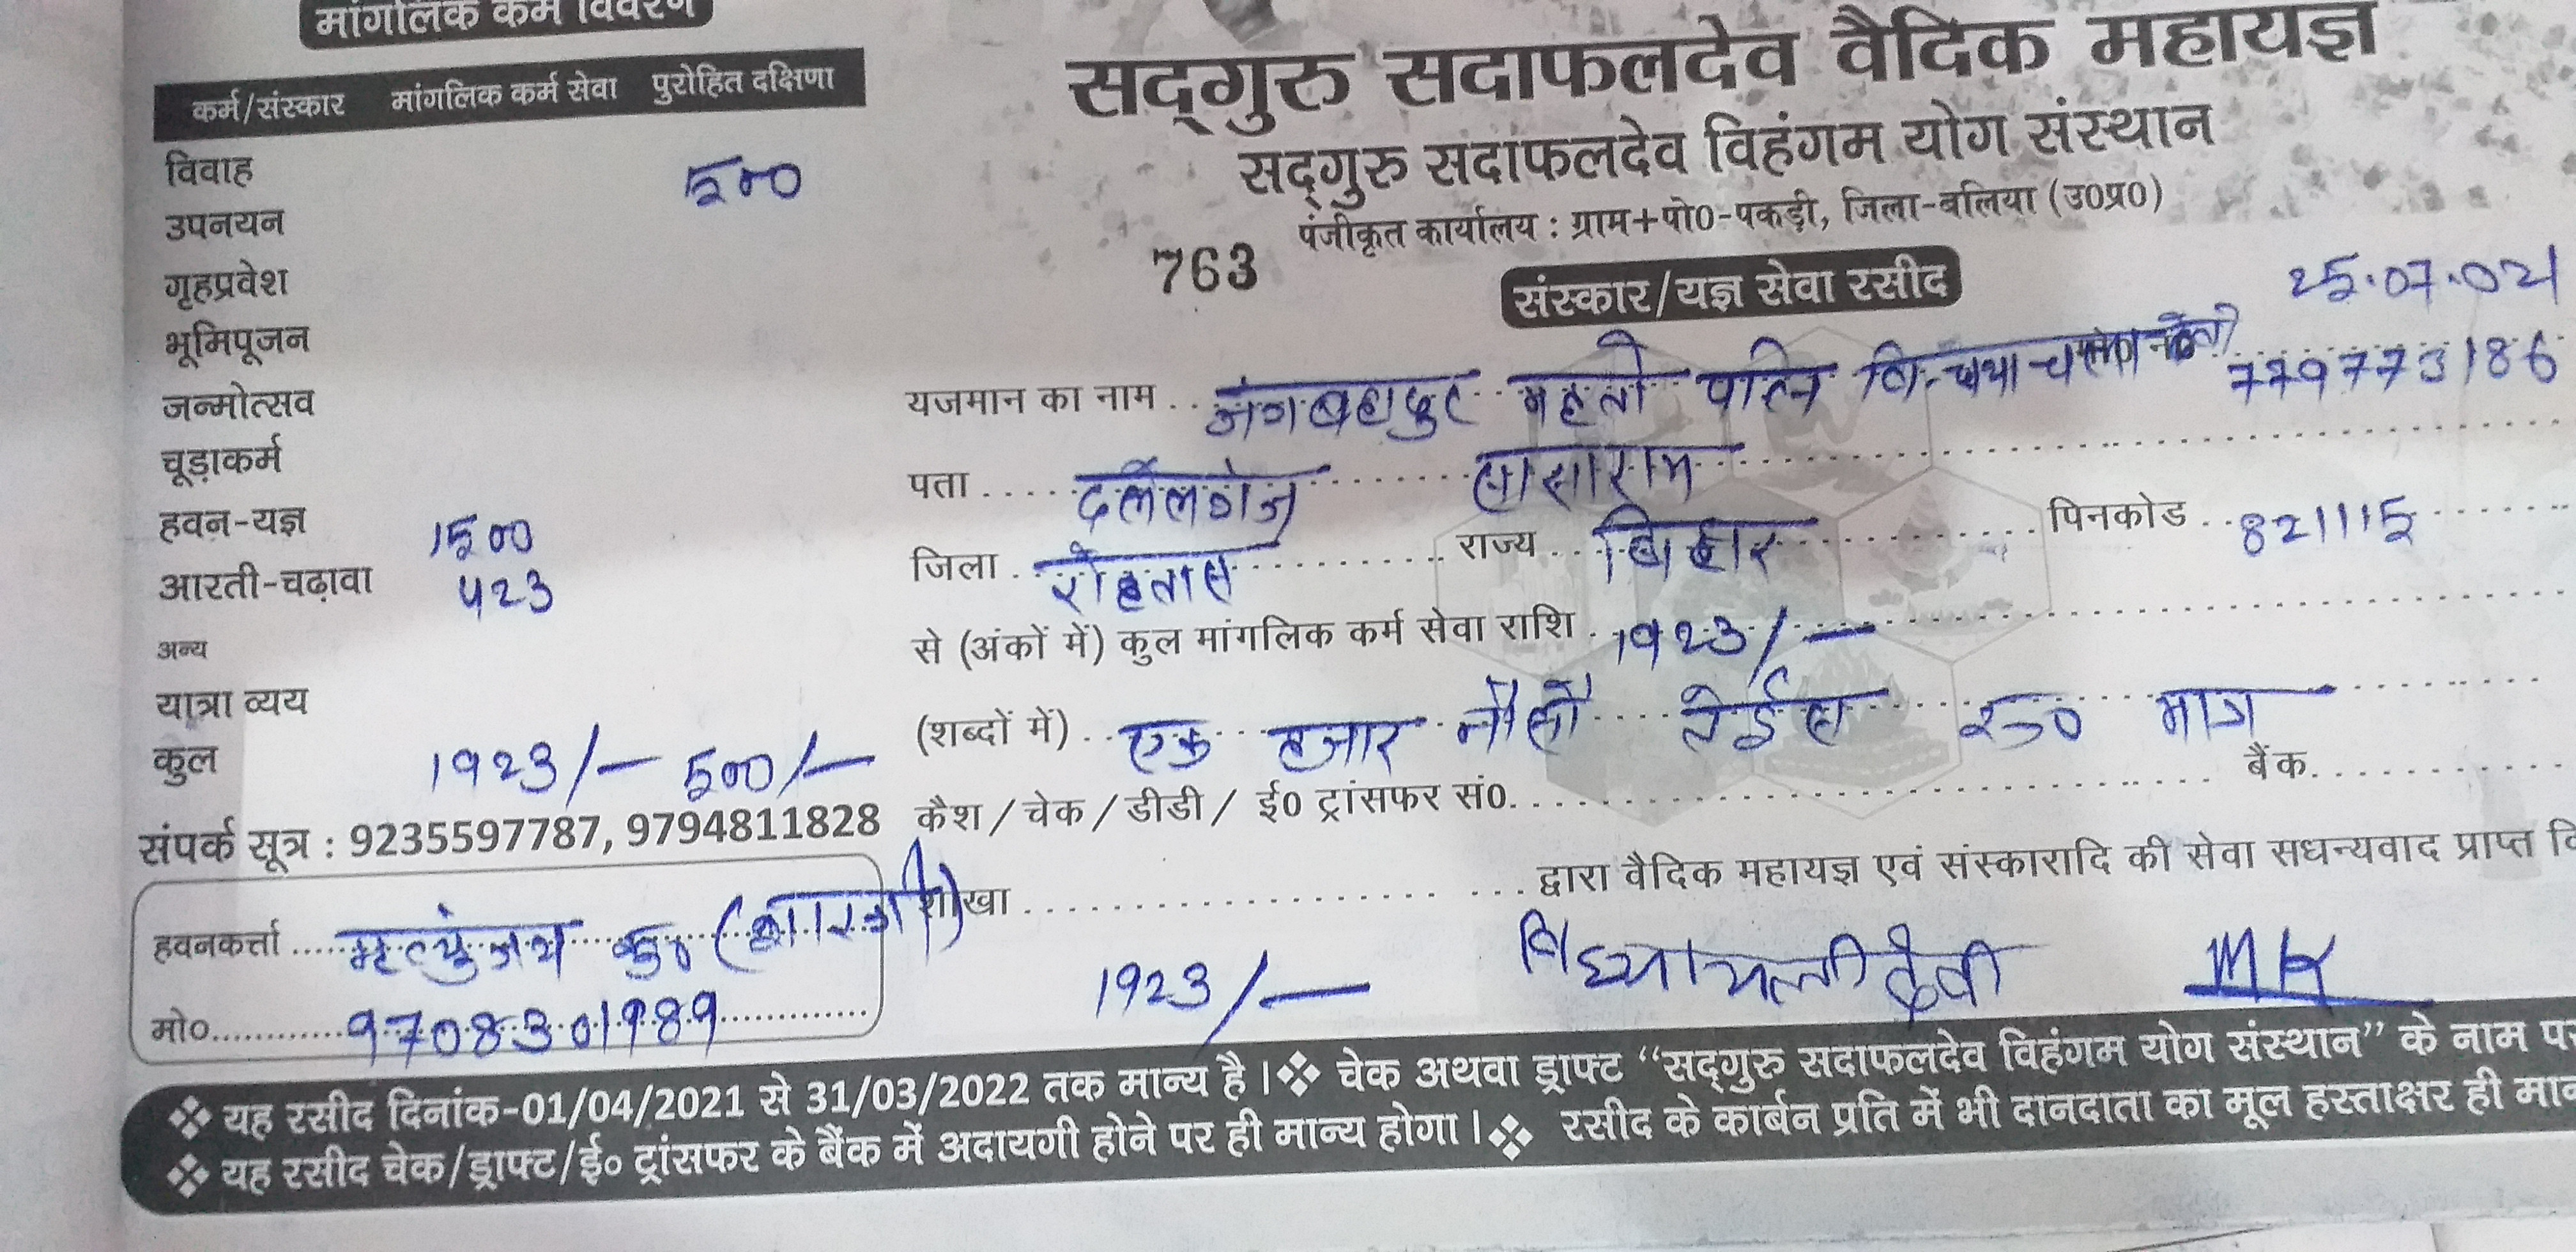 मांगलिक कर्म विवरण
कर्म/संस्कार मांगलिक कर्म सेवा पुरोहित दक्षिणा
विवाह 500
उपनयन
गृहप्रवेश
भूमिपूजन
जन्मोत्सव
चूड़ाकर्म
हवन-यज्ञ 1500
आरती-चढ़ावा 423
अन्य
यात्रा व्यय
कुल 1923/- 500/-
संपर्क सूत्र : 9235597787, 9794811828
हवनकर्त्ता मृत्युंजय कु०
मो० 9708301989
सद्गुरु सदाफलदेव वैदिक महायज्ञ
सद्गुरु सदाफलदेव विहंगम योग संस्थान
पंजीकृत कार्यालय : ग्राम+पो0-पकड़ी, जिला-बलिया (उ0प्र0)
763 संस्कार/यज्ञ सेवा रसीद 25.07.021
यजमान का नाम जंगबहादुर महतो पत्नि 7797773186
पता दलेलगंज सासाराम
जिला रोहतास राज्य बिहार पिनकोड 821115
से (अंकों में) कुल मांगलिक कर्म सेवा राशि 1923/-
(शब्दों में) एक हजार नौ सौ तेईस रू0 मात्र
कैश/चेक/डीडी/ ई0 ट्रांसफर सं0 बैंक
शाखा द्वारा वैदिक महायज्ञ एवं संस्कारादि की सेवा सधन्यवाद प्राप्त
1923/- देवी MK
❖ यह रसीद दिनांक-01/04/2021 से 31/03/2022 तक मान्य है। ❖ चेक अथवा ड्राफ्ट “सद्गुरु सदाफलदेव विहंगम योग संस्थान” के नाम पर
❖ यह रसीद चेक/ड्राफ्ट/ई० ट्रांसफर के बैंक में अदायगी होने पर ही मान्य होगा। ❖ रसीद के कार्बन प्रति में भी दानदाता का मूल हस्ताक्षर ही